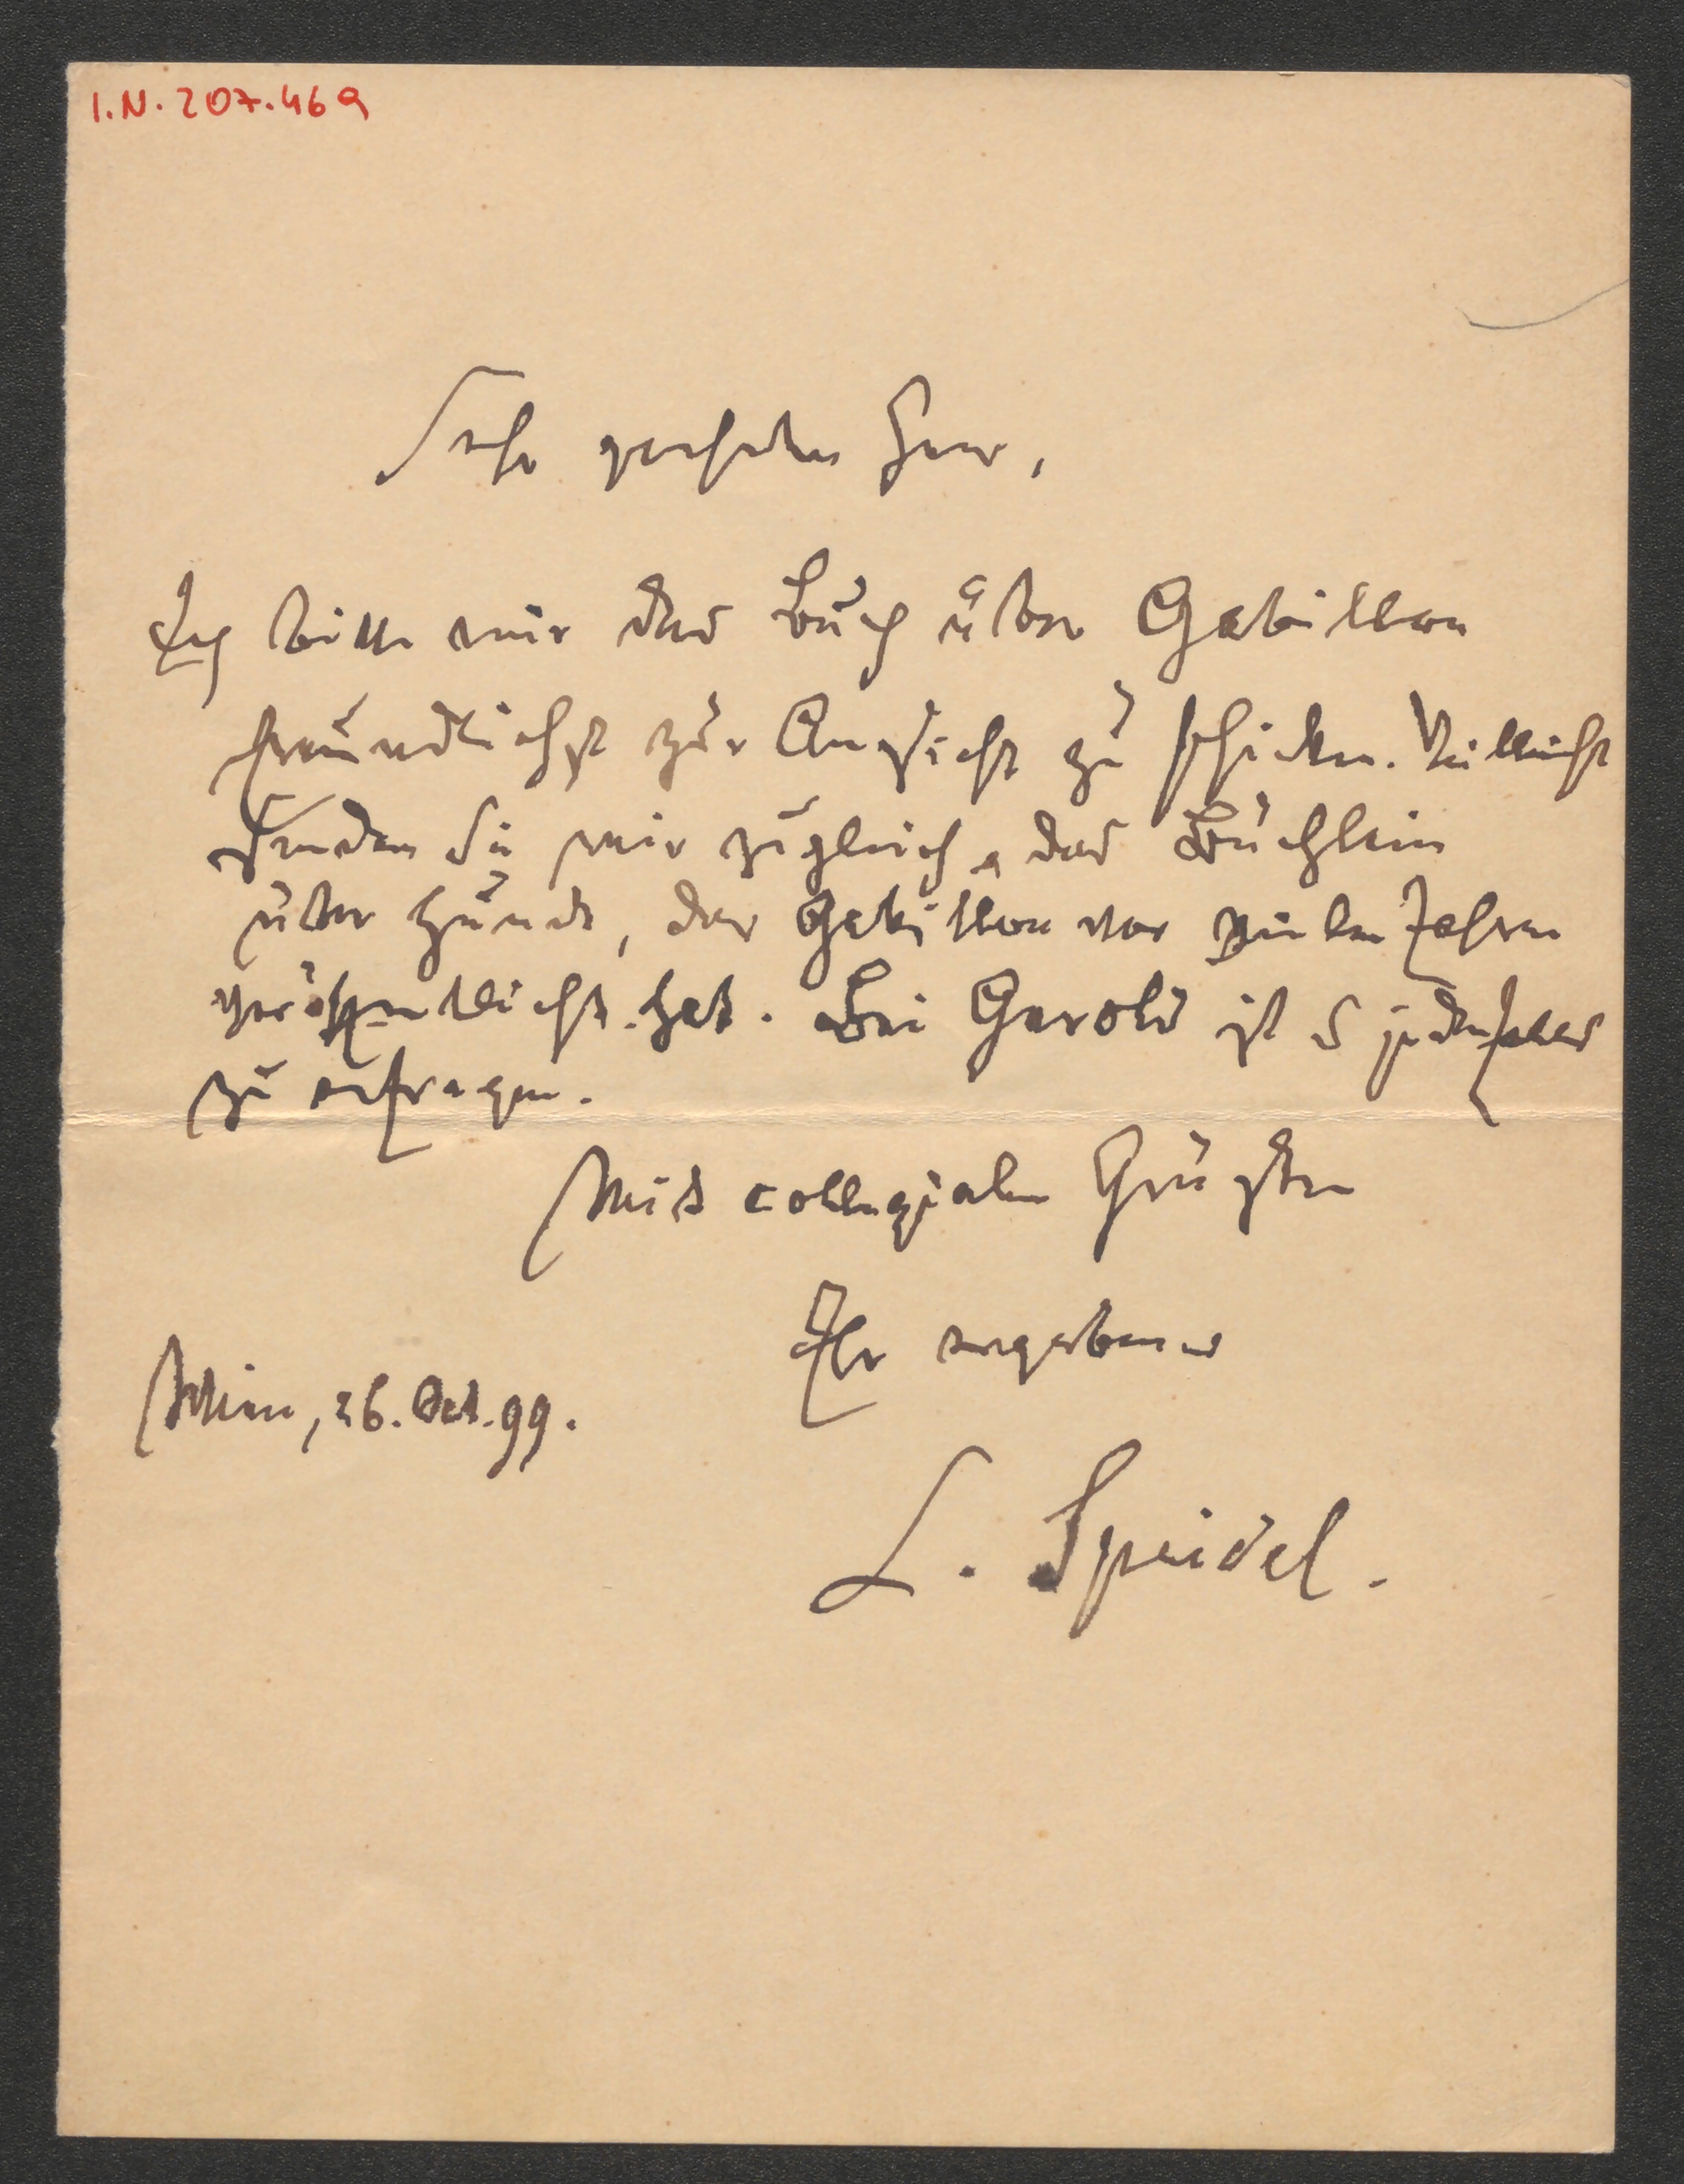 I.N. 207.469
Sehr geehrter Herr,
Ich bitte mir das Buch über Gabillon
freundlichst zur Ansicht zu schicken. Vielleicht
senden Sie mir zugleich das Büchlein
über Hunde, das Gabillon vor vielen Jahren
veröffentlicht hat. Bei Gerold ist es jedenfalls
zu erfragen.
Mit collegialen Grüßen
Ihr ergebener
Wien, 26. Oct. 99.
L. Speidel.